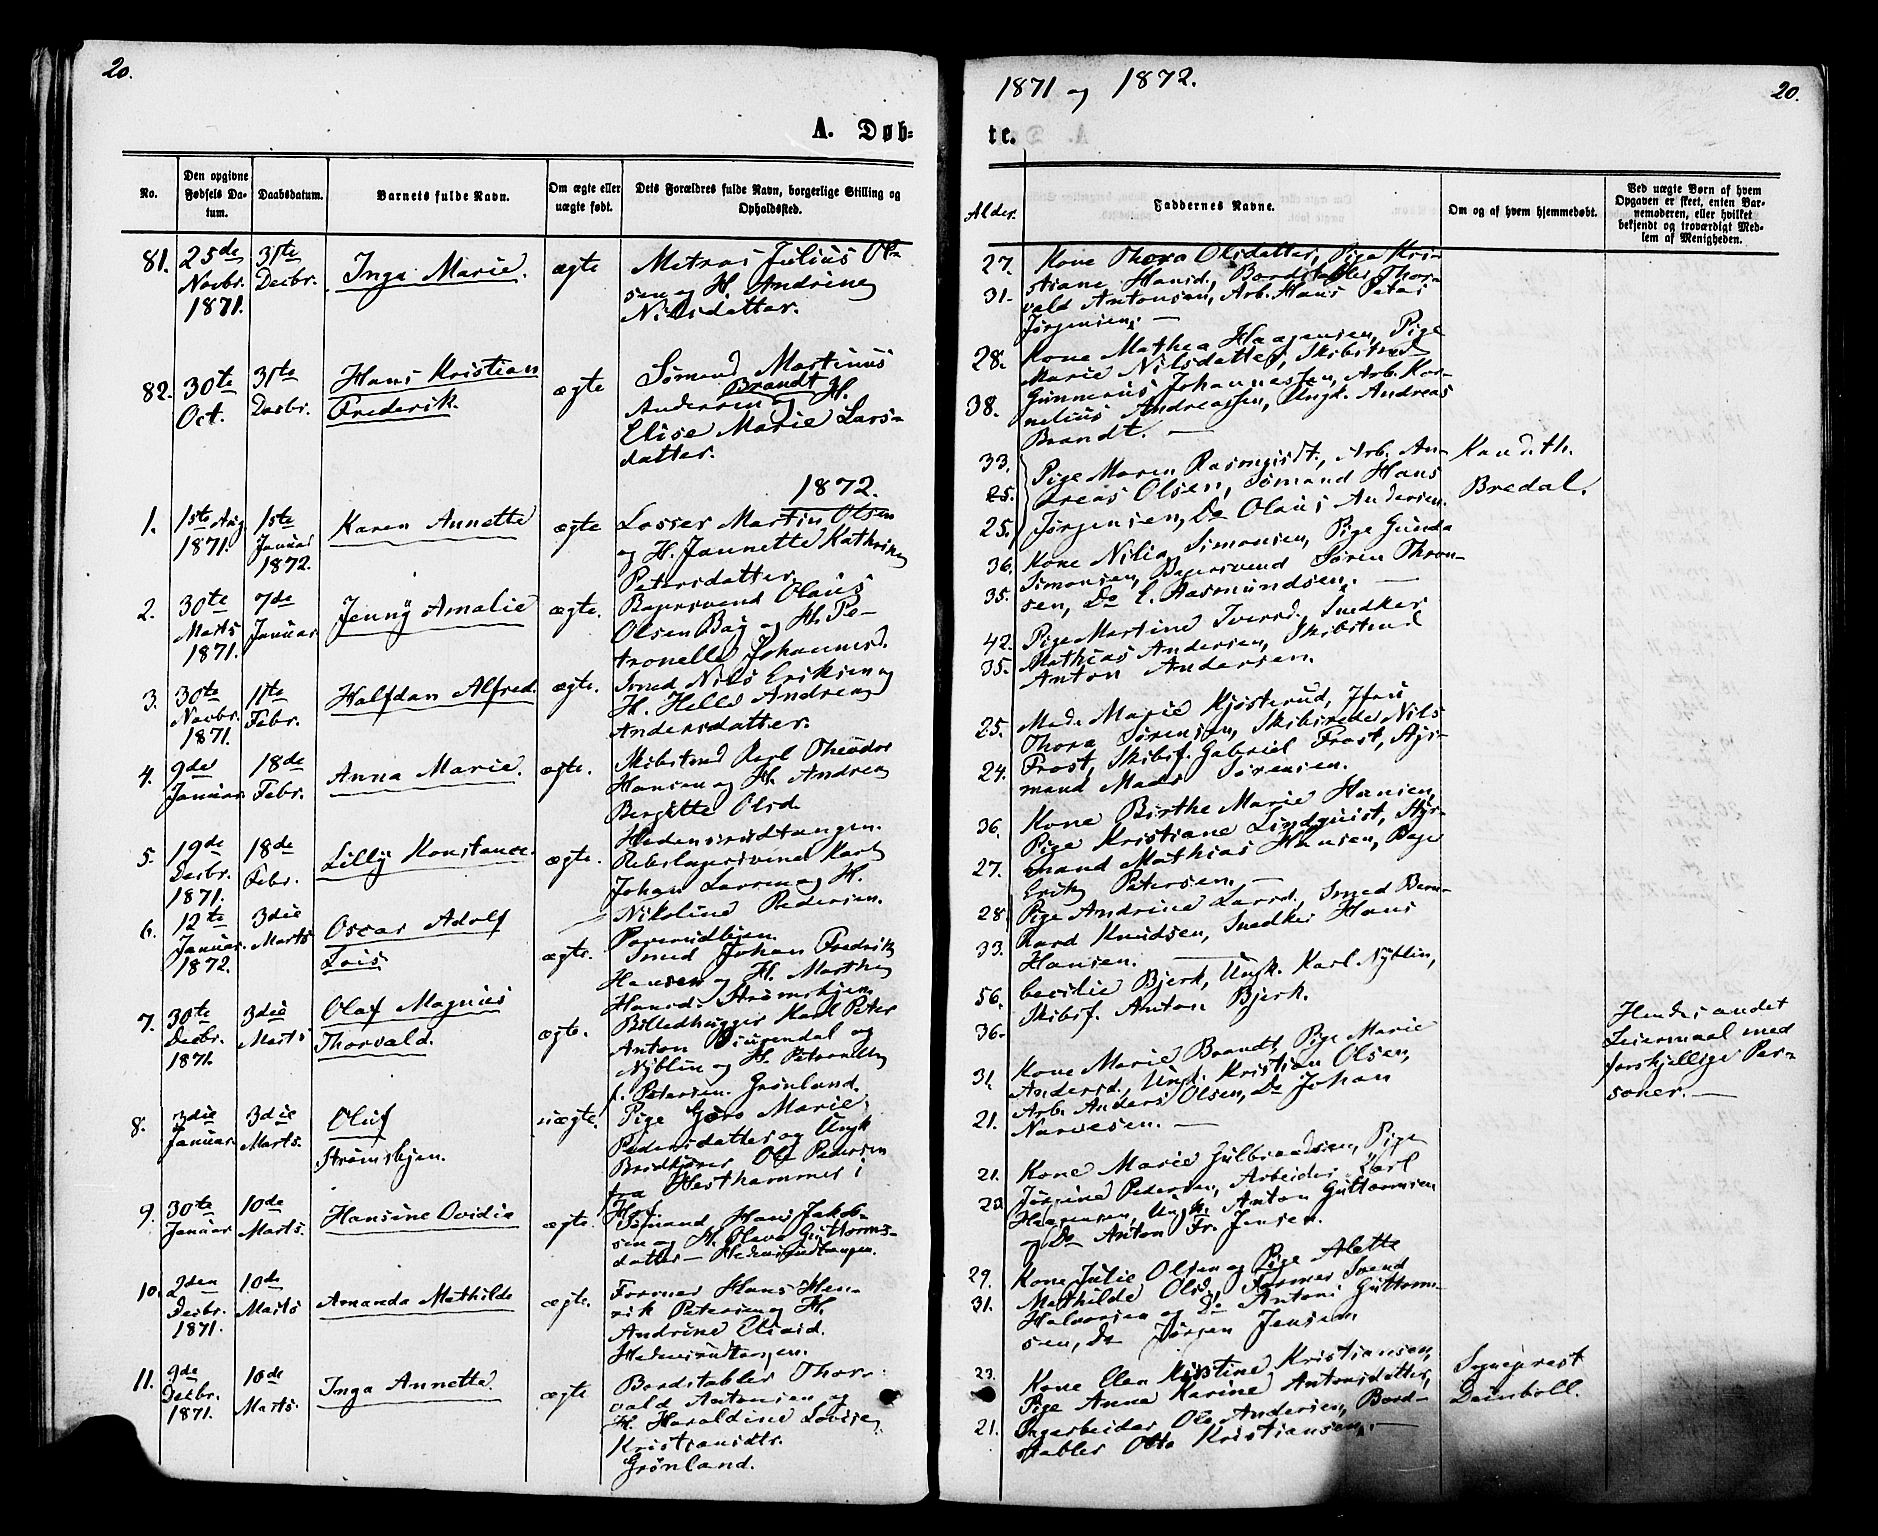 20.
A. Døb-
No.
Den opgivne Fødsels Datum.
Daabsdatum.
Barnets fulde Navn.
Om ægte eller uægte født.
Dets Forældres fulde Navn, borgerlige Stilling og Opholdssted.
81.
25de Novbr. 1871.
31te Decbr.
Inga Marie.
ægte
Matros Julius Ol-
sen og H. Andrine
Nilsdatter.
82.
30te Oct.
31te Decbr.
Hans Kristian
Frederik.
ægte
Sømand Martinus
Brandt
Andersen og H.
Elise Marie Lars-
datter.
1872.
1.
1ste Aug 1871.
1ste Januar 1872.
Karen Annette
ægte
Losser Martin Olsen
og H. Jannette Kathrine
Petersdatter
2.
30te Marts 1871.
7de Januar
Jenny Amalie
ægte.
Bagersvend Olaus
Olsen Bay og H. Pe-
tronelle Johannesd.
3.
30te Novbr. 1871.
11te Febr.
Halfdan Alfred.
ægte.
Smed Nils Eriksen og
H. Helle Andrea
Andersdatter.
4.
9de Januar.
18de Febr.
Anna Marie.
ægte.
Skibstmd Karl Theodor
Hansen og H. Andrea
Bergitte Olsd.
Hedensrudtangen.
5.
19de Decbr. 1871.
18de Febr.
Lilly Konstance.
ægte.
Rebslagersvend Karl
Johan Larsen og H.
Nikoline Pedersen.
6.
12te Januar. 1872.
3die Marts
Oscar Adolf
Lois
ægte.
Smed Johan Fredrik
Hansen og H. Marthe
Hansd. Strømshjen
7.
30te Decbr. 1871.
3die Marts
Olaf Magnus
Thorvald.
ægte.
Billedhugger Karl Peter
Anton og
Nyblin og H. Petronelle
f. Petersen. Grønland.
8.
3die Januar.
3die Marts.
Oluf
Strømshjen.
uægte.
Pige Gøro Marie
Pedersdatter og Ungk
Ole Pedersen
fra Hesthammer i
Hof.
9.
30te Januar
10de Marts.
Hansine Ovidia
ægte.
Sømand Hans Jakob-
sen og H. Oleva Guttorms-
datter — Hedensrudtangen.
10.
2den Decbr. 1871.
10de Marts
Amanda Mathilde
ægte.
Former Hans Hen-
rik Petersen og H.
Andrine Elisid.
Hedensrudtangen.
11.
9de Decbr. 1871.
10de Marts.
Inga Annette.
ægte
Bordstabler Thor-
vald Antonsen og
H. Haraldine Lovise
Kristiansdtr.
Grønland.
1871 og 1872.
20.
te.
Alder.
Faddernes Navne.
Om og af hvem hjemmedøbt.
Ved uægte Børn af hvem Opgaven er skeet, enten Barnemoderen, eller hvilket bekjendt og troværdigt Medlem af Menigheden.
27.
31.
Kone Thora Olsdatter, Pige Kri-
stiane Hansd., Bordstabler Thor-
vald Antonsen, Arb. Hans Peter
Jørgensen. —
28.
38.
Kone Mathea Haagensen, Pige
Marie Nilsdatter, Skibstmd
Gunnerius Johannessen, Arb. Kor-
nelius Andreassen, Ungk. Andreas
Brandt. —
33.
25.
25.
Pige Maren Rasmusdt., Arb. An-
dreas Olsen, Sømand Hans
Jørgensen, Do Olaus Andersen.
Kand. th.
Bredal.
36.
35.
Kone Nilia Simonsen, Pige Gunda
Simonsen, Bagersvend Søren Thron-
sen, Do C. Rasmundsen. —
42.
35.
Pige Martine Iversd., Snedker
Mathias Andersen, Skibstmd
Anton Andersen.
25.
24.
Mad. Marie Kjøsterud, Jfru
Thora Sørensen, Skibsreder Nils
Frost, Skibsf. Gabriel Frost, Styr-
mand Mads Sørensen.
36.
27.
Kone Birthe Marie Hansen,
Pige Kristiane Lindquist, Styr-
mand Mathias Hansen, Bager
Erik Petersen. —
28.
33.
Pige Andrine Larsd., Smed Bern-
hard Knudsen, Snedker Hans
Hansen. —
56.
36.
Cecilie Bjerk, Ungk. Karl Nyblin,
Skibsf. Anton Bjerk.
31.
21.
Kone Marie Brandt, Pige Marie
Andersd., Ungk. Kristian Olsen,
Arb. Anders Olsen, Do Johan
Narvesen. —
Hendes andet
Leiermaal med
forskjellige Per-
soner. —
21.
23
Kone Marie Gulbrandsen, Pige
Jørgine Pedersen, Arbeider Karl
Haagensen, Ungk. Anton Guttormsen
og Do Anton Fr. Jensen.
29.
31.
Kone Julie Olsen og Pige Alette
Mathilde Olsd., Former Svend
Halvorsen og Do Anton Guttorm-
sen, Do Jørgen Jensen.
23.
21.
Kone Elen Kristine Kristiansen,
Pige Anne Karine Antonsdatter,
Arbeider Ole Andersen, Bord-
stabler Otto Kristiansen. —
Sogneprest
Deinboll.